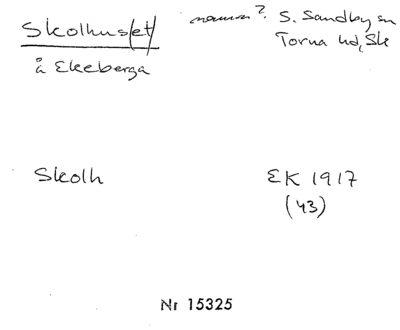 Skolhus(et)
namn? S. Sandby sn
Torna hd, Sk
å Ekeberga
Skolh
EK 1917
(43)
Nr 15325